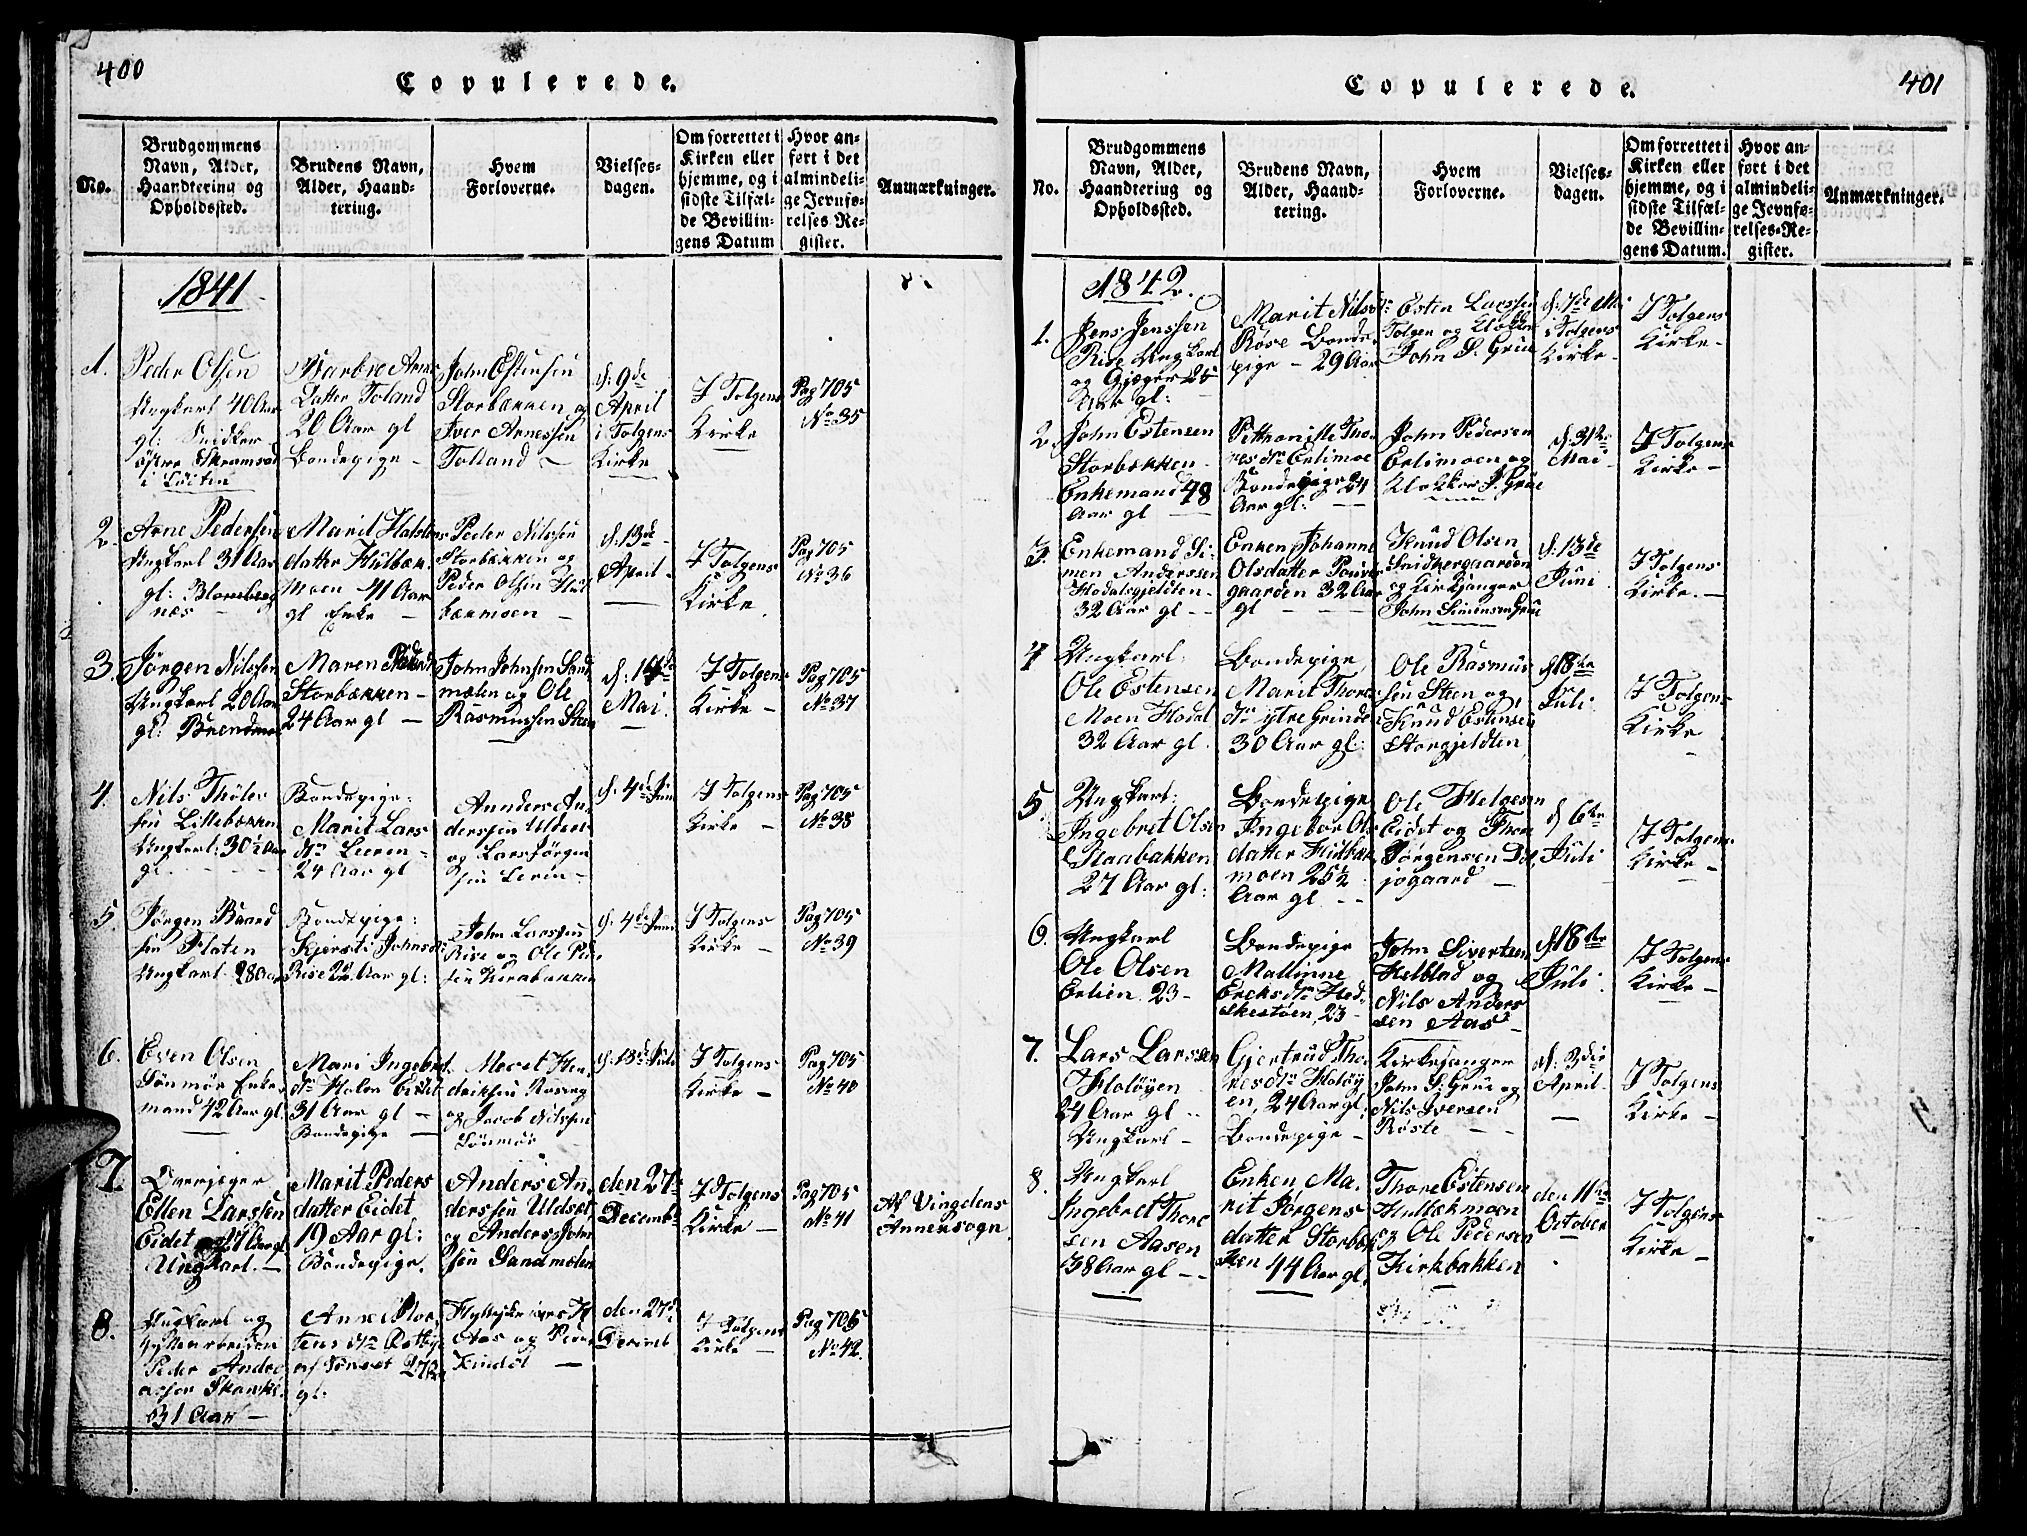 400
Copulerede.
No.
Brudgommens
Navn, Alder,
Haandtering og
Opholdssted.
Brudens Navn,
Alder, Haand-
tering.
Hvem
Forloverne.
Vielses-
dagen.
Om forrettet i
Kirken eller
hjemme, og i
sidste Tilfæl-
de Bevillin-
gens Datum
Hvor an-
ført i det
almindeli-
ge Jevnfø-
relses Re-
gister.
Anmærkninger.
1841
1.
Peder Olsen
Ungkarl 40 Aar
gl: Snidker
østre
i Løiten
Datter Toland
20 Aar gl
Bondepige -
John Estensen
Storbækken og
Iver Arnessen
Tolland -
d: 9de
April
i Tolgens
Kirke
I Tolgens
Kirke
Pag 705
No 35
2.
Arne Pedersen
Ungkarl 31 Aar
gl:
næs
Marit Halsten
datter Hulbæk-
moen 41 Aar
gl Enke -
Peder Nilssen
Storbækken og
Peder Olsen Hul
bækmoen -
d: 13de
April -
I Tolgens
Kirke.
Pag 705
No 36
3.
Jørgen Nilssen
Ungkarl 20 Aar
gl:
Maren
Storbækken -
24 Aar gl -
John Johnsen Sand
mælen og Ole
Rasmussen Steen
Mai.
I Tolgens
Kirke -
Pag 705
No 37
4.
Nils
sen Lillebækken
Ungkarl: 30½ Aar
gl
Bondepige:
Marit Lars
dtr
24 Aar gl
Anders An-
derssen Uldset
og Lars Jørgen
sen
d: 4de Juni
I Tolgens
Kirke -
Pag 705
No 38
5.
Jørgen Baard
sen Floten
Ungkarl: 28 Aar
Bondepige:
Kjersti Johnsdt:
Rise 22 Aar gl:
John Larssen
Rise og Ole
sen
d: 4de Juni
I Tolgens
Kirke -
Pag 705
No 39
6.
Even Olsen
Lønmør Enke-
mand 42 Aar gl.
Mari Ingebret
dtr Holen Eidet
31 Aar gl -
Bondepige -
driksen
og Jacob Nilssen
Lønmør
d: 13de Juli
I Tolgens
Kirke -
Pag 705
No 40
7.
Ellen Larssen
Eidet
Ungkarl. -
Marit Peders
datter Eidet
19 Aar gl:
Bondepige.
Anders An-
derssen Uldset
og Anders John
sen Sandmælen
den 27de
Decembr
I Tolgens
Kirke -
Pag 705
No 41
Af Vingelens
Annexsogn.
8.
Ungkarl og
Peder Andre
31 Aar -
gl:
Aas og
den 27de
I Tolgens
Kirke -
Pag 705
No 42.
401
Copulerede.
No.
Brudgommens
Navn, Alder,
Haandtering og
Opholdssted.
Brudens Navn,
Alder, Haand-
tering.
Hvem
Forloverne.
Vielses-
dagen.
Om forrettet i
Kirken eller
hjemme, og i
sidste Tilfæl-
de Bevillin-
gens Datum.
Hvor an-
ført i det
almindeli-
ge Jevnfø-
relses-Re-
gister.
Anmærkninger.
1842.
1.
Jens Jenssen
Rise Ungkarl
og Gjæger 25
Aar gl:
Marit Nilsdt:
Røse Bonde-
pige - 29 Aar
Esten Larssen
Tolgen og Klokker
John S. Grue
d: 7de Mai
i Tolgens
Kirke -
I Tolgens
Kirke -
2.
John Estensen
Storbækken -
Enkemand 48
Aar gl -
Pethronille Tho
res dtr Erlimoe
Bondepige 24
Aar gl: -
John Pedersen
Erlimoen og
Klokker S. Grue
Mai -
I Tolgens
Kirke -
3.
Enkemand Si-
men Anderssen
Hodalsgjeldten -
32 Aar gl -
Enken Johanne
Olsdatter
gaarden 32 Aar
gl -
Knud Olsen
Snidkergaarden
og Kirksjanger
John Simensen Grue
d: 13de
Juni
I Tolgens
Kirke. -
4
Ungkarl:
Ole Estensen
Moen Hodal
32 Aar gl.
Bondepige,
Marit Thores
dtr ytre Grinde
30 Aar gl:
Ole Rasmus
sen Steen og
Knud Estensen
Storgjeldten
d 18de
Juli
I Tolgens
Kirke
-
5.
Ungkarl:
Ingebret Olsen
Raabakken
27 Aar gl:
Bondepige
Ingebor Ols
datter Hulbæk
moen 25½
Aar gl - -
Ole Helgesen
Eidet og Thore
Jørgensen Døl
jøgaard -
d 6te
Juli
I Tolgens
Kirke -
6.
Ungkarl
Ole Olsen
Erlien. 23 -
Bondepige
Mallinne
Ericks dtr Hod
skestøen, 23 -
John Sivertsen
Kelblad og
Nils Anders
sen Aas -
d: 18de
Juli.
I Tolgens
Kirke -
7.
Lars Larssen
Holøyen
24 Aar gl -
Ungkarl -
Gjertrud Tho-
res dtr Holøy
en, 24 Aar gl:
Bondepige -
Kirkesanger
John S. Grue og
Nils Iversen
Røste -
d: 3die
April.
I Tolgens
Kirke -
8.
Ungkarl
Ingebret Thore
sen Aasen
38 Aar gl - -
Enken Ma-
rit Jørgens
datter Storbæk
ken 44 Aar gl,
Thore Estensen
Hulbækmoen
og Ole Pedersen
Kirkbakken
den 11te
October
I Tolgens
Kirke -